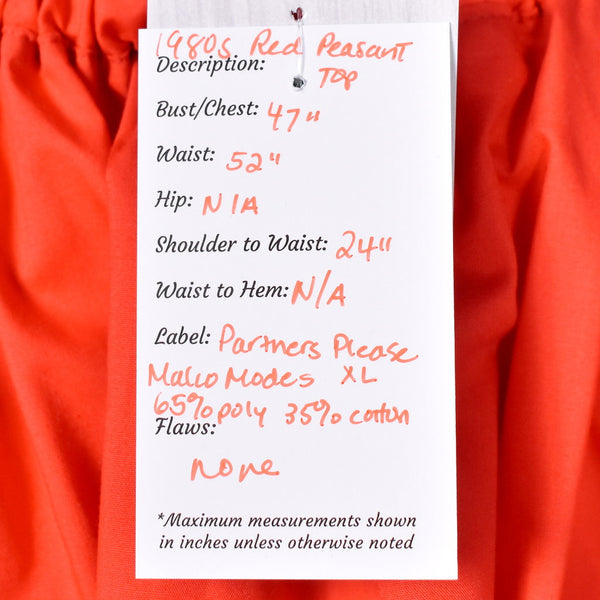 1980s Red Peasant
Description: Top
Bust/Chest: 47"
Waist: 52"
Hip: N/A
Shoulder to Waist: 24"
Waist to Hem: N/A
Label: Partners Please
Malco Modes XL
65% poly 35% cotton
Flaws:
none
*Maximum measurements shown
in inches unless otherwise noted